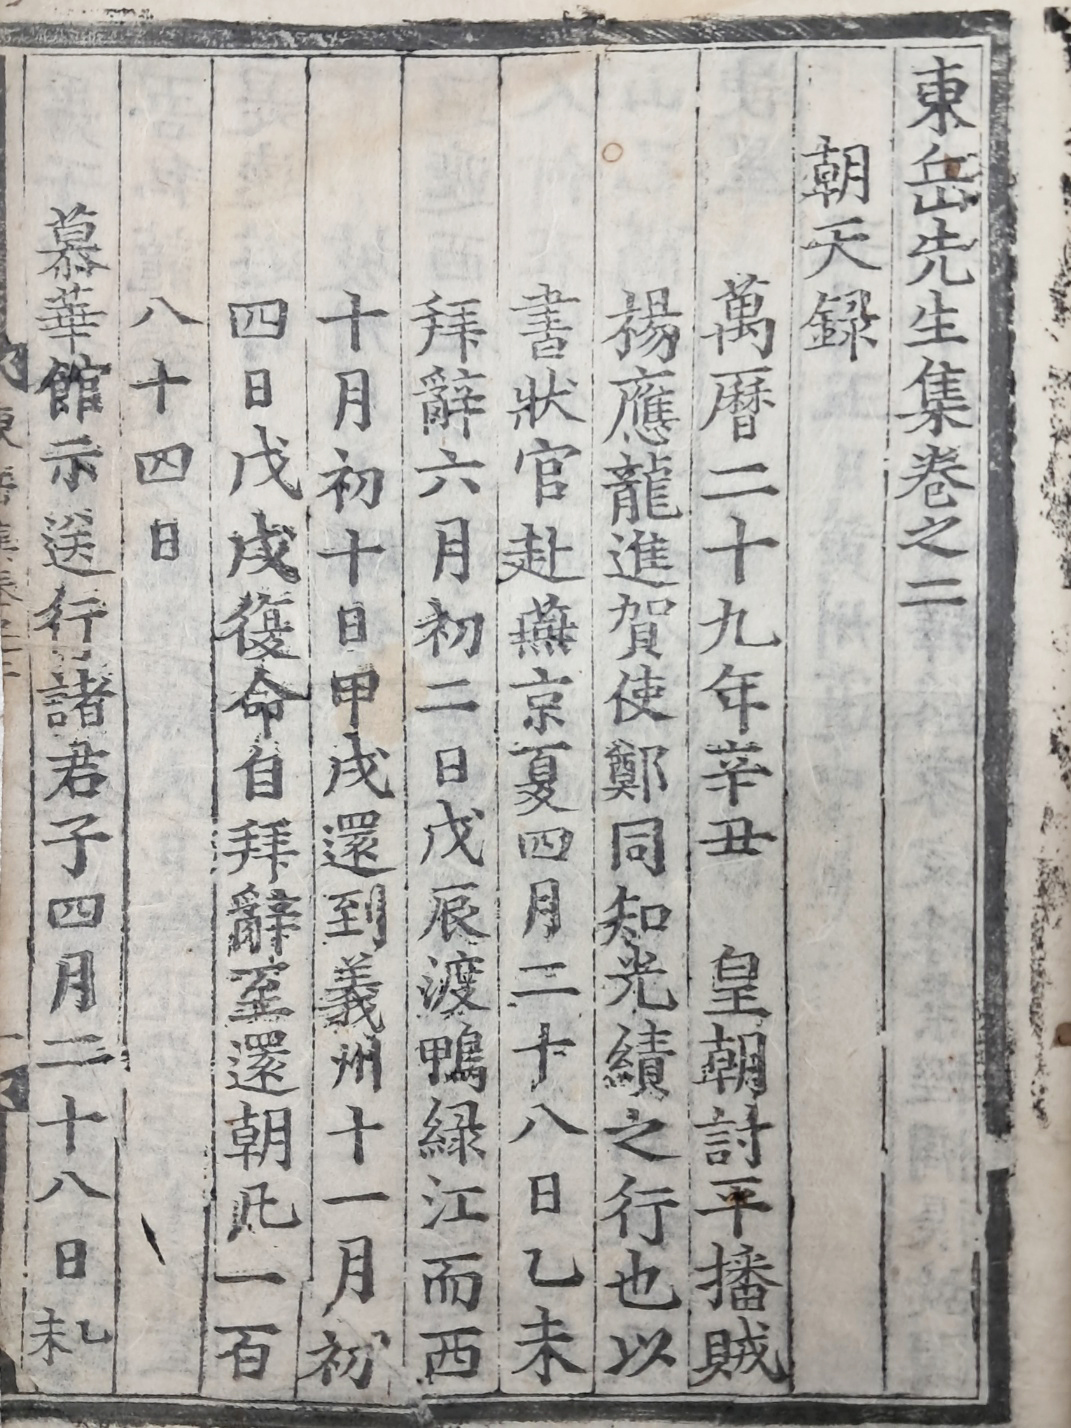 東岳先生集卷之二
朝天録
萬曆二十九年辛丑　皇朝討平播賊
楊應龍進賀使鄭同知光績之行也以
書狀官赴燕京夏四月二十八日乙未
拜辭六月初二日戊辰渡鴨緑江而西
十月初十日甲戌還到義州十一月初
四日戊戌復命自拜辭至還朝凡一百
八十四日
慕華館示送行諸君子四月二十八日乙未